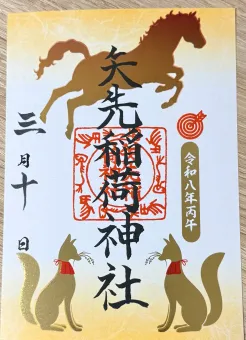 令和八年丙午
矢先稲荷神社
三月十日